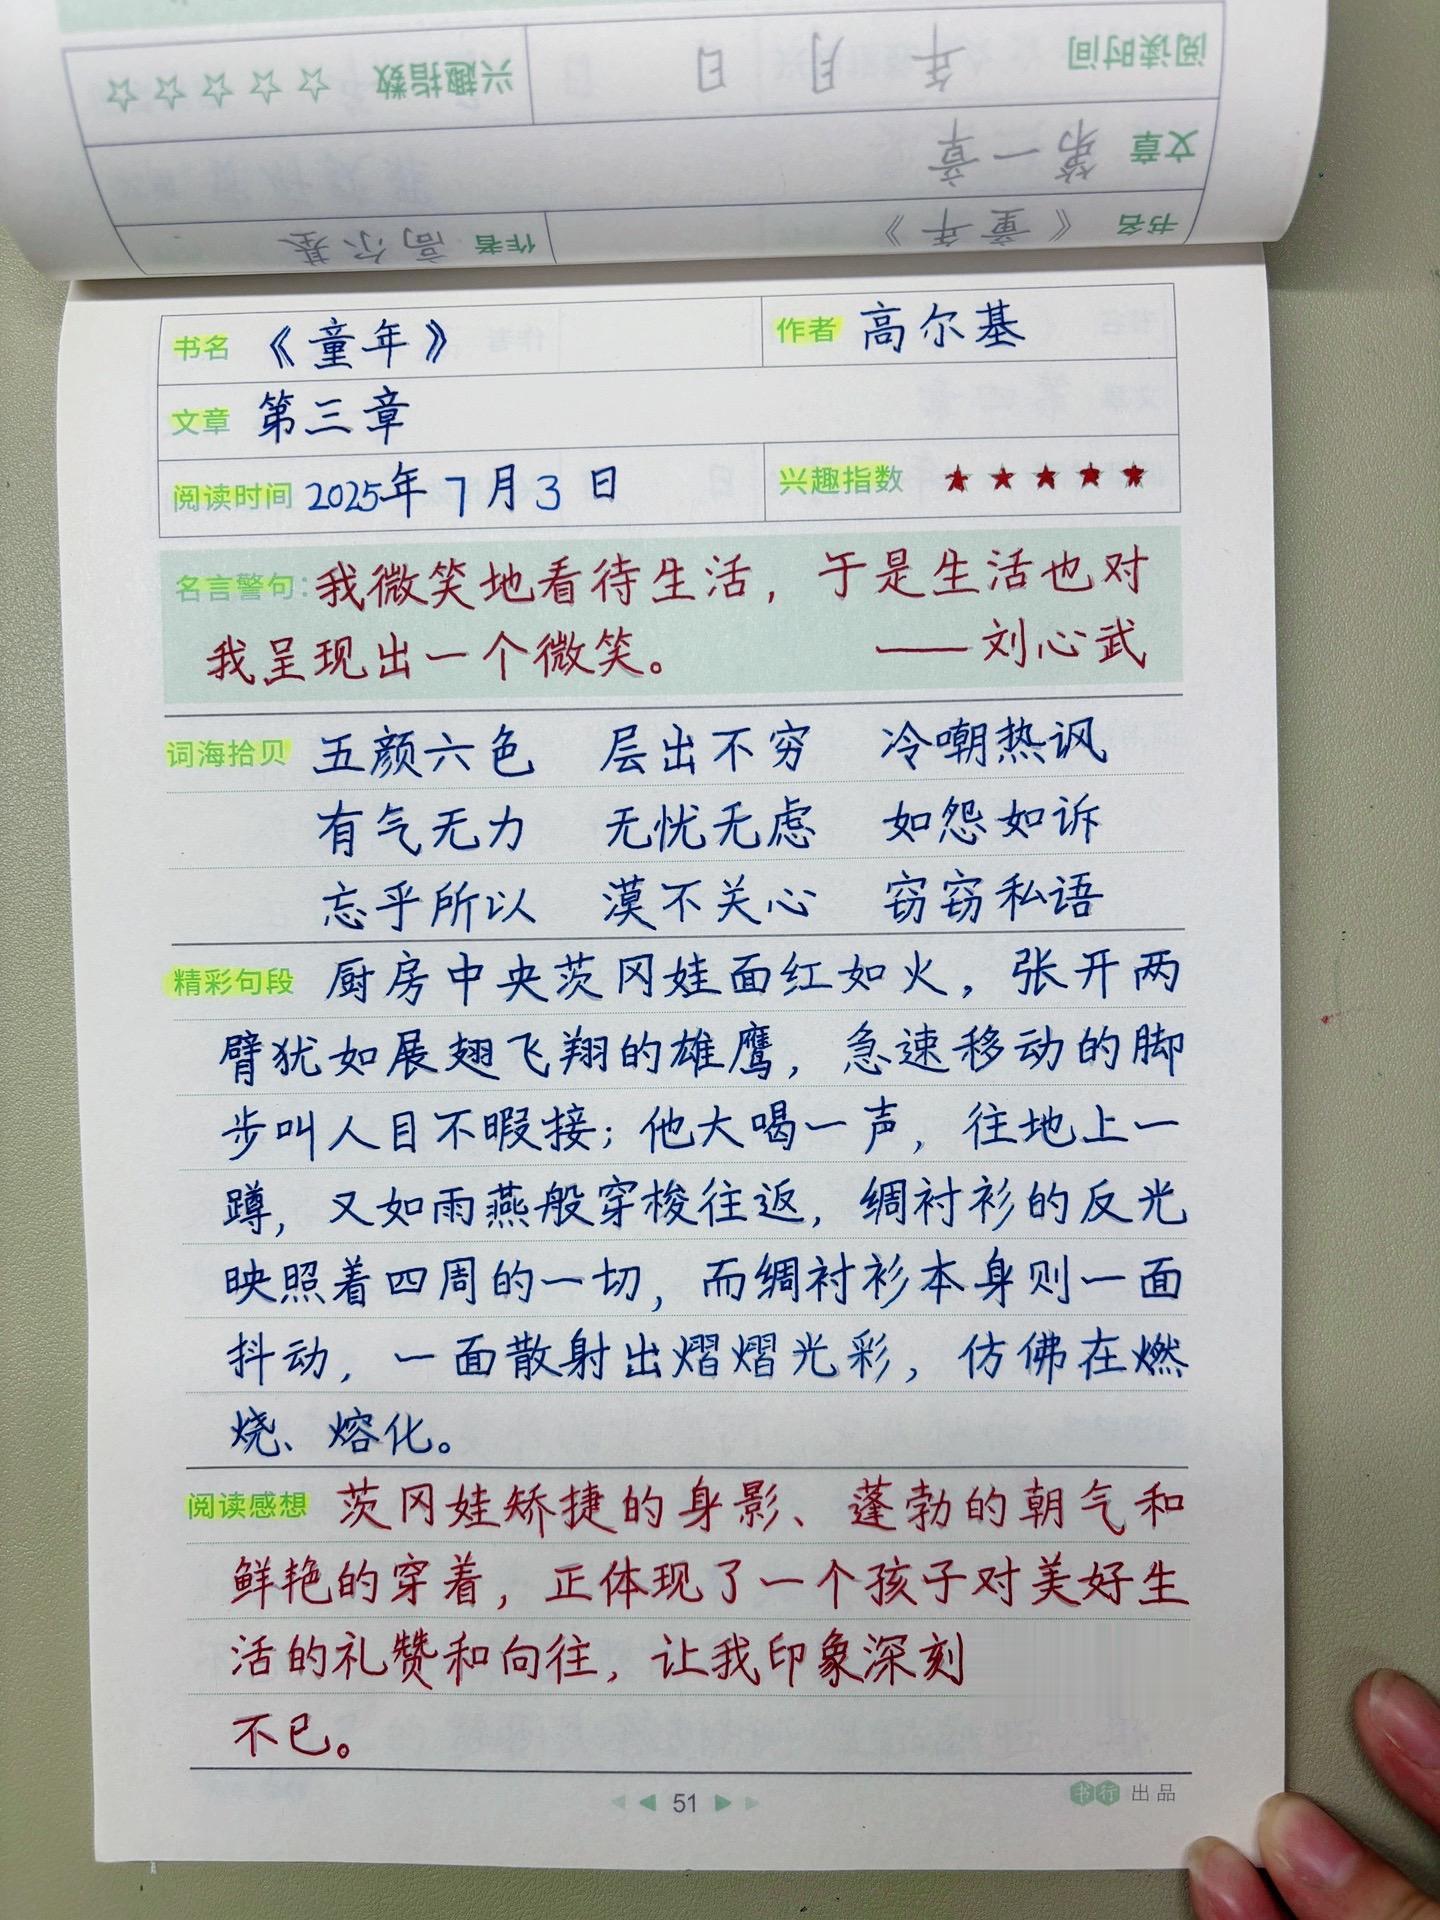 阅读时间 年 月 日 兴趣指数 ☆☆☆☆☆
文章 第一章
书名 《童年》 作者 高尔基
书名 《童年》 作者 高尔基
文章 第三章
阅读时间 2025年7月3日 兴趣指数 ★★★★★
名言警句：我微笑地看待生活，于是生活也对
我呈现出一个微笑。 ——刘心武
词海拾贝 五颜六色 层出不穷 冷嘲热讽
有气无力 无忧无虑 如怨如诉
忘乎所以 漠不关心 窃窃私语
精彩句段 厨房中央茨冈娃面红如火，张开两
臂犹如展翅飞翔的雄鹰，急速移动的脚
步叫人目不暇接；他大喝一声，往地上一
蹲，又如雨燕般穿梭往返，绸衬衫的反光
映照着四周的一切，而绸衬衫本身则一面
抖动，一面散射出熠熠光彩，仿佛在燃
烧、熔化。
阅读感想 茨冈娃矫捷的身影、蓬勃的朝气和
鲜艳的穿着，正体现了一个孩子对美好生
活的礼赞和向往，让我印象深刻
不已。
51
书行 出品